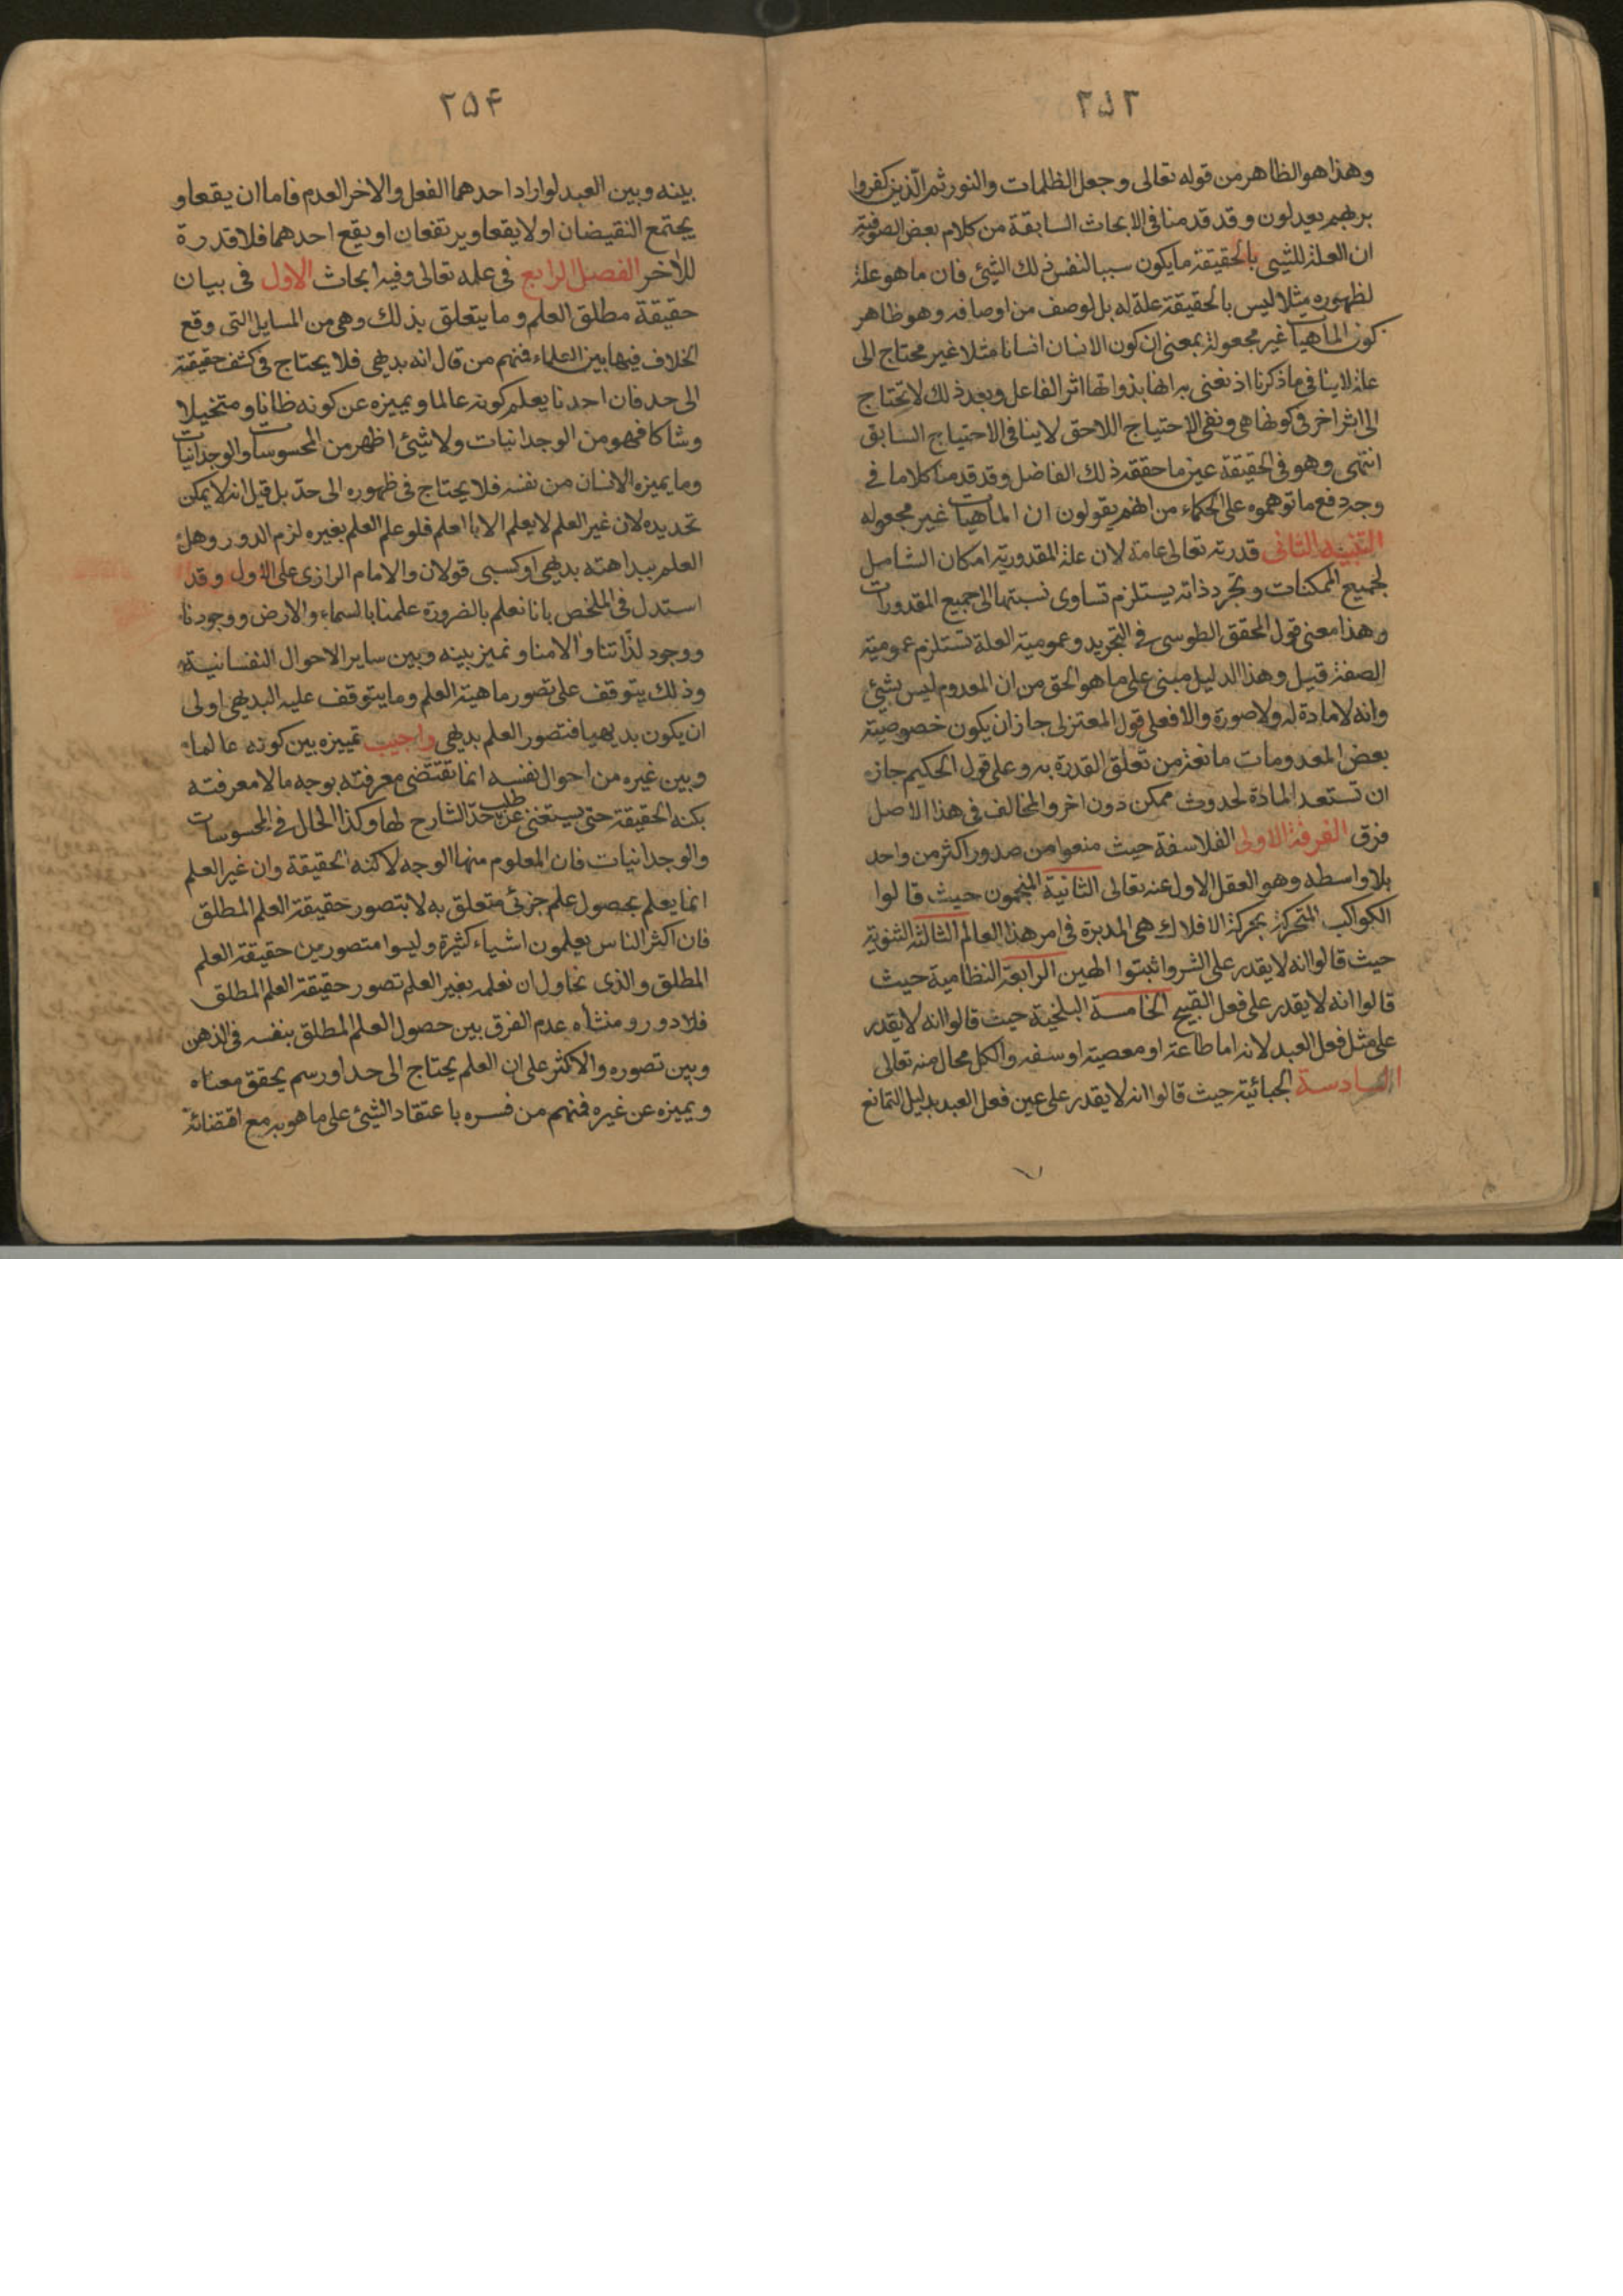 ٢٥٣
وهذا هو الظاهر من قوله تعالى وجعل الظلمات والنور ثم الذين كفروا
بربهم يعدلون وقد قدمنا فى الابحاث السابقة من كلام بعض الصوفية
ان العلة للشيى بالحقيقة ما يكون سببا لنفس ذلك الشيئ فان ما هو علة
لظهوره مثلا ليس بالحقيقة علة له بل لوصف من اوصافه وهو ظاهر
كون الماهيات غير مجعولة بمعنى ان كون الانسان انسانا مثلا غير محتاج الى
علة لا ينافى ما ذكرنا اذ نعنى به انها بذواتها اثر الفاعل وبعد ذلك لا تحتاج
الى اثر اخر فى كونها هى ونفى الاحتياج اللاحق لا ينافى الاحتياج السابق
انتهى وهو فى الحقيقة عين ما حققه ذلك الفاضل وقد قدمنا كلاما فى
وجه دفع ما توهموه على الحكماء من انهم يقولون ان الماهيات غير مجعوله
التنبيه الثانى قدرته تعالى عامة لان علة المقدورية امكان الشامل
لجميع الممكنات وتجرد ذاته يستلزم تساوى نسبتها الى جميع المقدورات
وهذا معنى قول المحقق الطوسى فى التجريد وعمومية العلة تستلزم عمومية
الصفة قيل وهذا الدليل مبنى على ما هو الحق من ان المعدوم ليس بشئ
وانه لا مادة له ولا صورة والا فعلى قول المعتزلى جاز ان يكون خصوصية
بعض المعدومات مانعة من تعلق القدرة به وعلى قول الحكيم جاز
ان تستعد المادة لحدوث ممكن دون اخر والمخالف فى هذا الاصل
فرق الفرقة الاولى الفلاسفة حيث منعوا من صدور اكثر من واحد
بلا واسطه وهو العقل الاول عنه تعالى الثانية المنجمون حيث قالوا
الكواكب المتحركة بحركة الافلاك هى المدبرة فى امر هذا العالم الثالثة الثنوية
حيث قالوا انه لا يقدر على الشر واثبتوا الهين الرابعة النظامية حيث
قالوا انه لا يقدر على فعل القبيح الخامسة البلخية حيث قالوا انه لا يقدر
على مثل فعل العبد لانه اما طاعة او معصية او سفه والكل محال منه تعالى
السادسة الجبائية حيث قالوا انه لا يقدر على عين فعل العبد بدليل التمانع
٢٥۴
بينه وبين العبد لو اراد احدهما الفعل والاخر العدم فاما ان يقعا و
يجتمع النقيضان او لا يقعا ويرتفعان او يقع احدهما فلا قدرة
للاخر الفصل الرابع فى علمه تعالى وفيه ابحاث الاول فى بيان
حقيقة مطلق العلم وما يتعلق بذلك وهى من المسايل التى وقع
الخلاف فيها بين العلماء فمنهم من قال انه بديهى فلا يحتاج فى كشف حقيقته
الى حد فان احدنا يعلم كونه عالما ويميزه عن كونه ظانا ومتخيلا
وشاكا فهو من الوجدانيات ولا شيئ اظهر من المحسوسات والوجدانيات
وما يميزه الانسان من نفسه فلا يحتاج فى ظهوره الى حد بل قيل انه لا يمكن
تحديده لان غير العلم لا يعلم الا بالعلم فلو علم العلم بغيره لزم الدور وهل
العلم ببداهته بديهى او كسبى قولان والامام الرازى على الاول وقد
استدل فى الملخص بانا نعلم بالضرورة علمنا بالسماء والارض ووجودنا
ووجود لذاتنا والامنا ونميز بينه وبين ساير الاحوال النفسانية
وذلك يتوقف على تصور ماهية العلم وما يتوقف عليه البديهى اولى
ان يكون بديهيا فتصور العلم بديهى واجيب تمييزه بين كونه عالما
وبين غيره من احوال نفسه انما تقتضى معرفته بوجه ما لا معرفته
بكنه الحقيقة حتى يستغنى عن طلب حد الشارح لها وكذا الحال فى المحسوسات
والوجدانيات فان المعلوم منها الوجه لا كنه الحقيقة وان غير العلم
انما يعلم بحصول علم جزئى متعلق به لا بتصور حقيقة العلم المطلق
فان اكثر الناس يعلمون اشياء كثيرة وليسوا متصورين حقيقة العلم
المطلق والذى نحاول ان نعلمه بغير العلم تصور حقيقة العلم المطلق
فلا دور ومنشأه عدم الفرق بين حصول العلم المطلق بنفسه فى الذهن
وبين تصوره والاكثر على ان العلم يحتاج الى حد او رسم يحقق معناه
ويميزه عن غيره فمنهم من فسره باعتقاد الشيئ على ما هو به مع اقتضائه